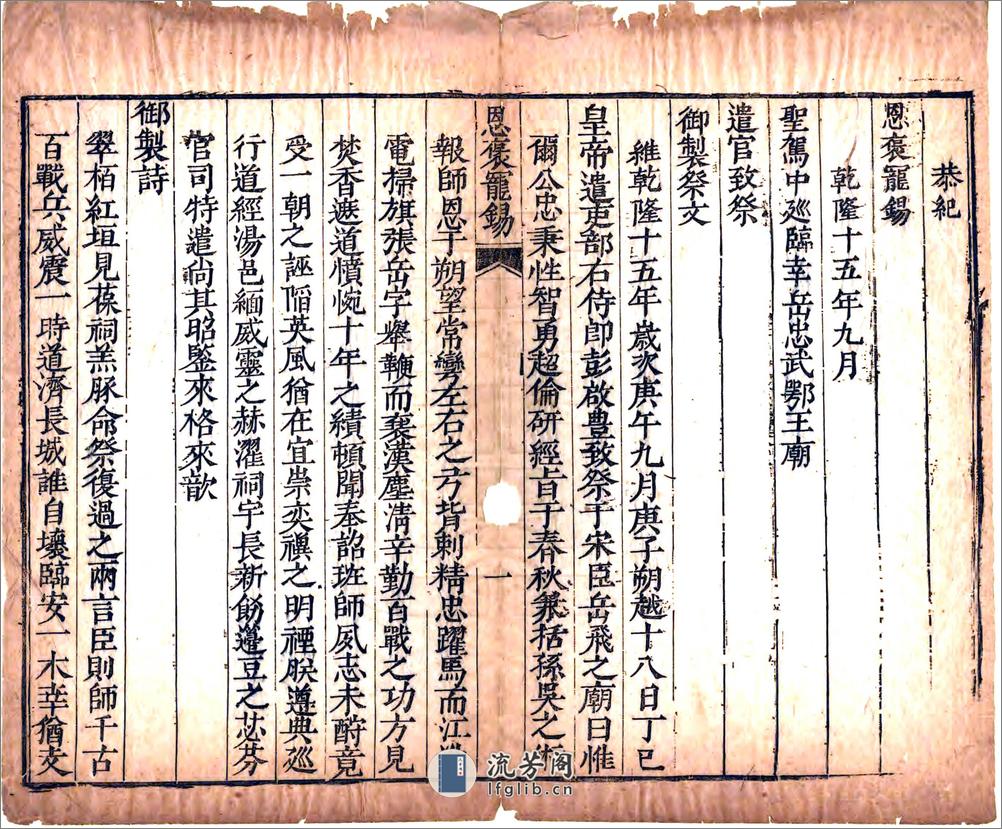 恭紀
恩褒寵錫
乾隆十五年九月
聖駕中廵臨幸岳忠武鄂王廟
遣官致祭
御製祭文
維乾隆十五年歲次庚午九月庚子朔越十八日丁巳
皇帝遣吏部右侍郎彭啟豊致祭于宋臣岳飛之廟曰惟
爾公忠秉性智勇超倫研經㫖于春秋兼括孫吳之
恩褒寵錫
一
報師恩于朔望常彎左右之弓背刺精忠躍馬而江
電掃旗張岳字舉鞭而襄漢塵淸辛勤百戰之功方見
焚香遮道憤惋十年之績頓聞奉詔班師夙志未酧竟
受一朝之誣陷英風猶在宜崇奕禩之明禋朕遵典廵
行道經湯邑緬威靈之赫濯祠宇長新飭籩豆之苾芬
官司特遣尚其昭鑒來格來歆
御製詩
翠栢紅垣見葆祠羔豚命祭復過之兩言臣則師千古
百戰兵威震一時道濟長城誰自壞臨安一木幸猶支
流芳閣
lfglib.cn